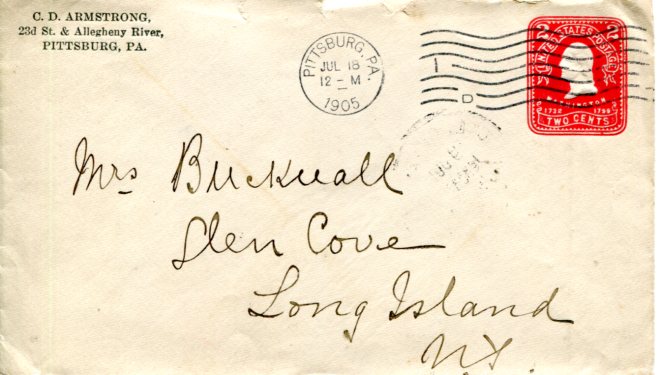 C. D. ARMSTRONG,
23d St. & Allegheny River,
PITTSBURG, PA.
PITTSBURG, PA.
JUL 18
12 - M
1905
1
D
UNITED STATES POSTAGE
2 2
WASHINGTON
1732 1799
TWO CENTS
Mrs Bucknall
Glen Cove
Long Island
N.Y.